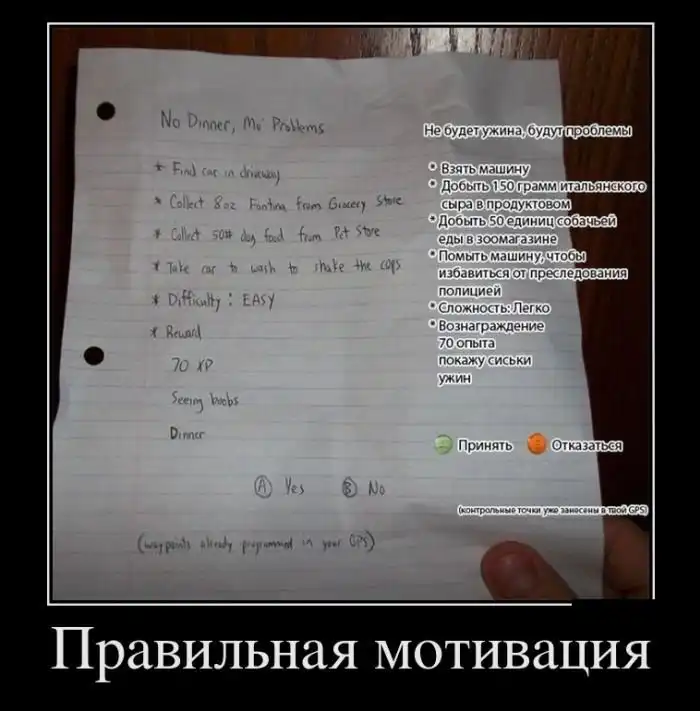 No Dinner, Mo' Problems
* Find car in driveway
* Collect 8oz Fontina from Grocery Store
* Collect 50# dog food from Pet Store
* Take car to wash to shake the cops
* Difficulty: EASY
* Reward
70 XP
Seeing boobs
Dinner
A Yes B No
(waypoints already programmed in your GPS)
Не будет ужина, будут проблемы
* Взять машину
* Добыть 150 грамм итальянского
сыра в продуктовом
* Добыть 50 единиц собачьей
еды в зоомагазине
* Помыть машину, чтобы
избавиться от преследования
полицией
* Сложность: Легко
* Вознаграждение
70 опыта
покажу сиськи
ужин
Принять Отказаться
(контрольные точки уже занесены в твой GPS)
Правильная мотивация